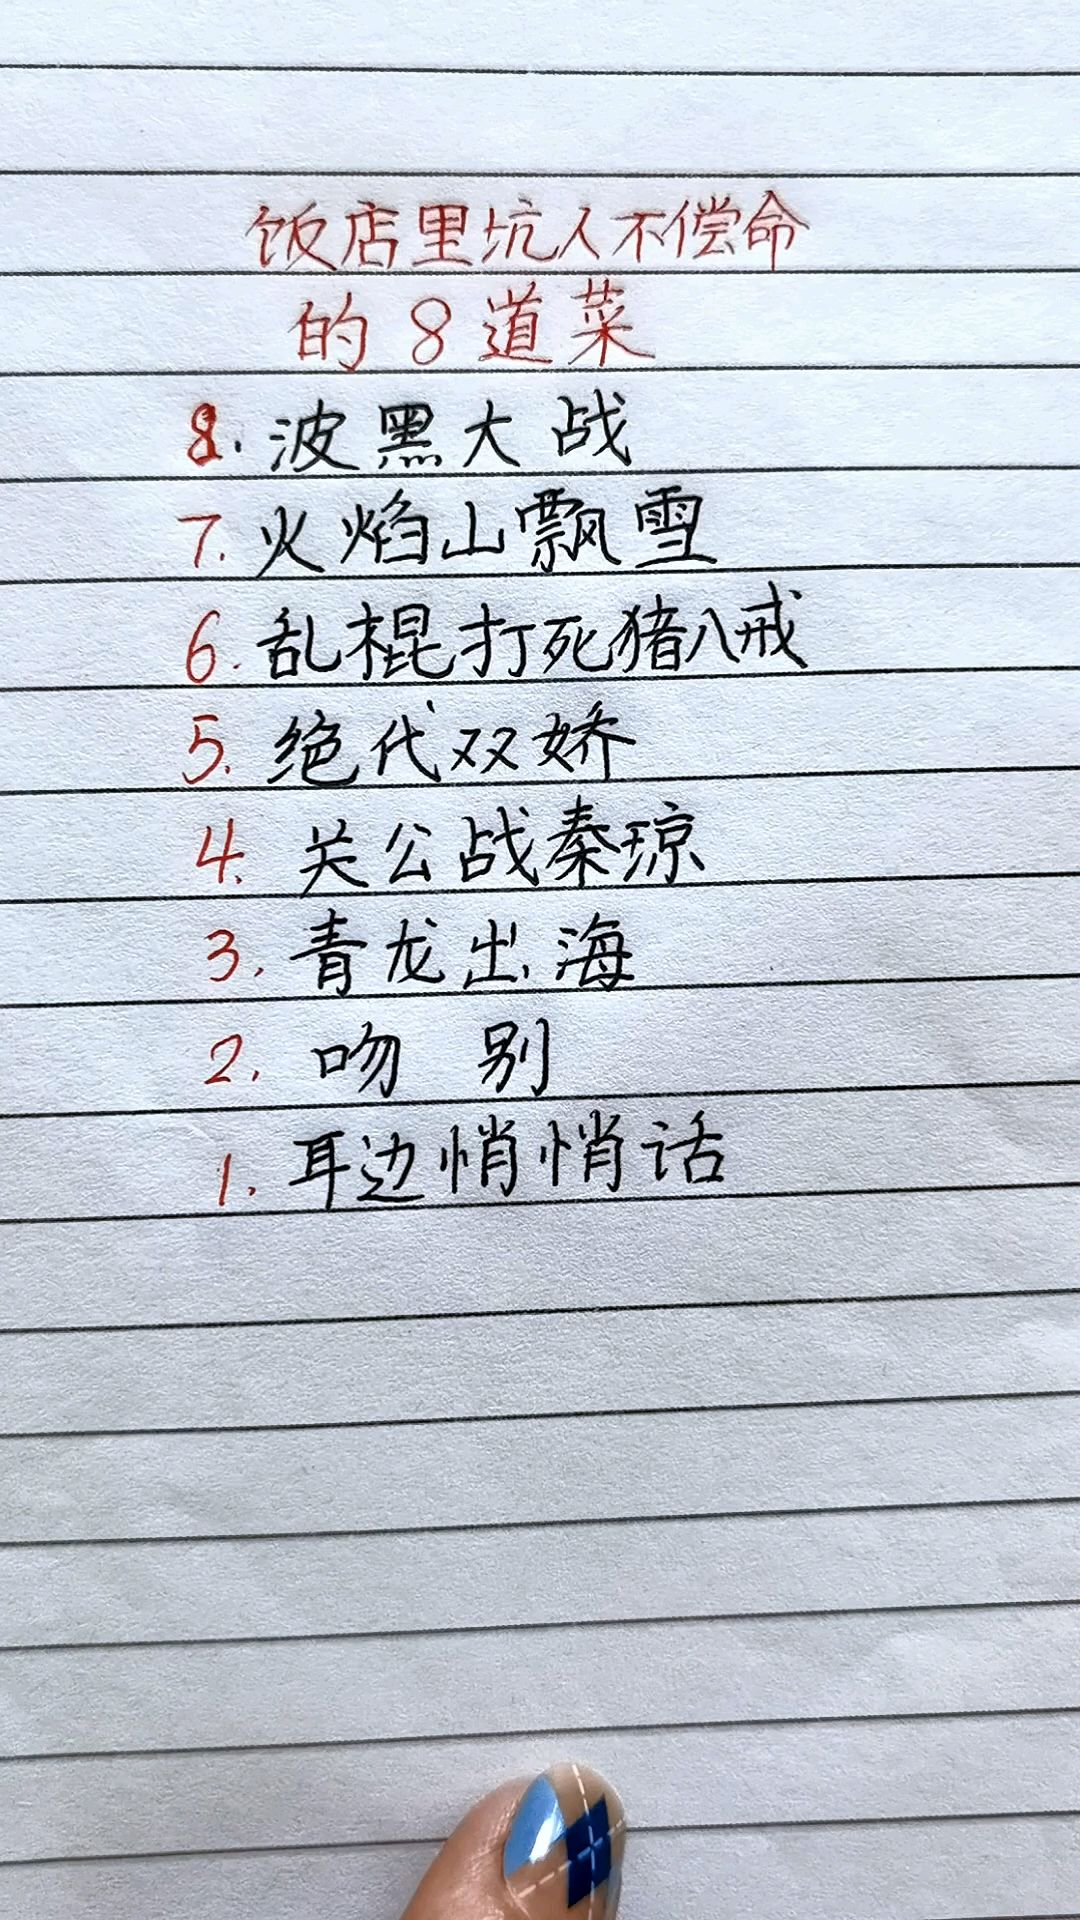 饭店里坑人不偿命
的8道菜
8.波黑大战
7.火焰山飘雪
6.乱棍打死猪八戒
5.绝代双娇
4.关公战秦琼
3.青龙出海
2.吻别
1.耳边悄悄话